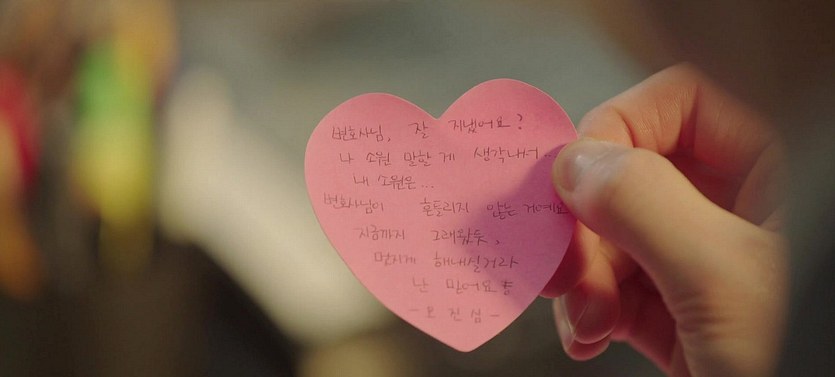 변호사님, 잘 지냈어요?
나 소원 말할 게 생각나서...
내 소원은...
변호사님이 흔들리지 않는 거예요
지금까지 그래왔듯,
멋지게 해내실거라
난 믿어요
- 오 진 심 -